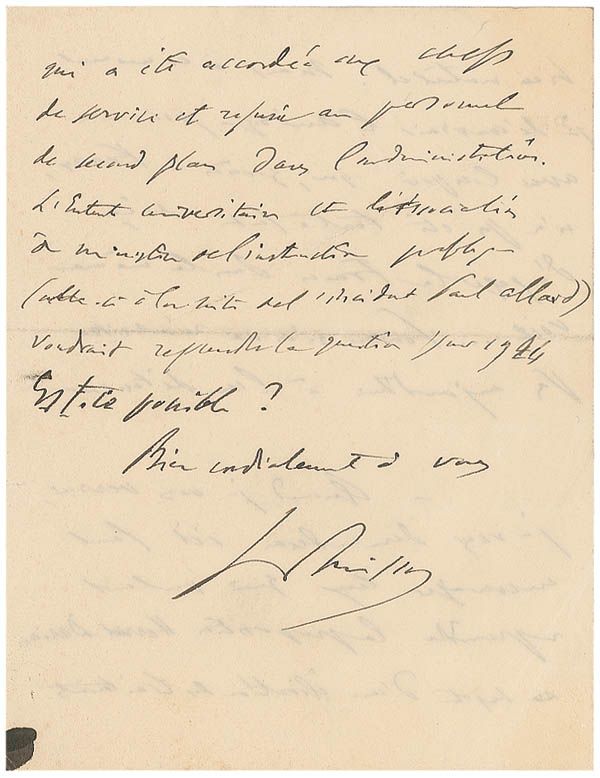 qui a été accordée aux chefs
de service et refusée au personnel
de second plan dans l'administration.
L'Entente universitaire et l'association
du ministère de l'instruction publique
(celle-ci à la suite de l'incident Paul Allard)
voudrait reprendre la question pour 1924
Est-ce possible ?
Bien cordialement à vous